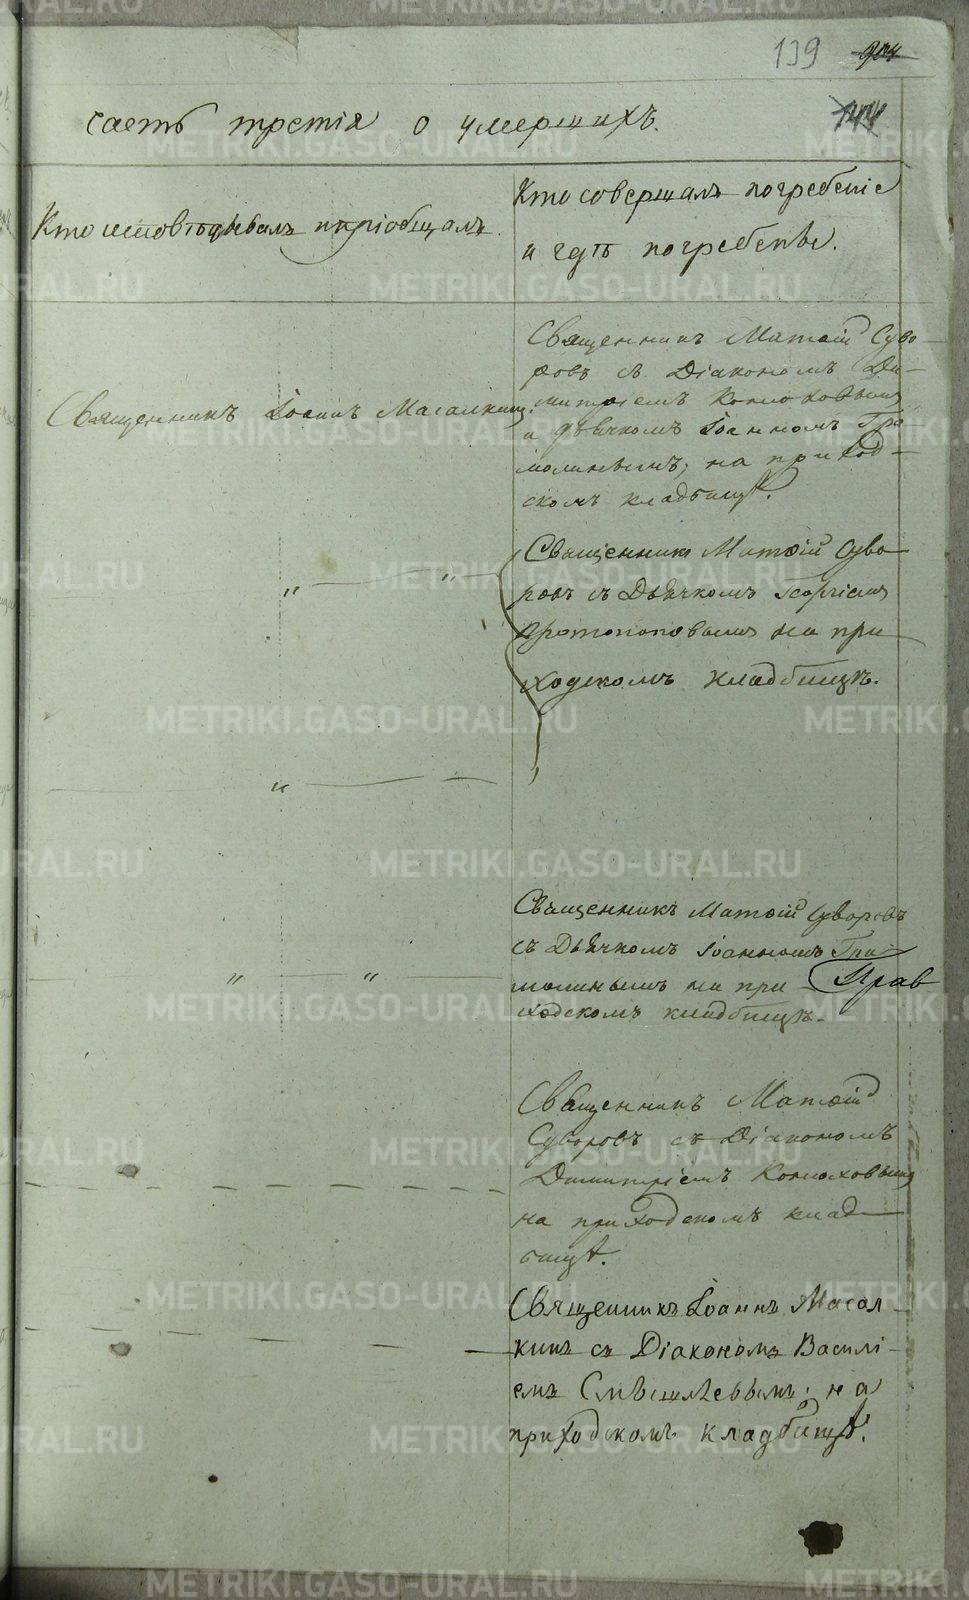 139
144
часть третія о умершихъ.
Кто исповѣдывалъ и пріобщалъ.
Кто совершалъ погребеніе
и гдѣ погребены.
Священникъ Іоаннъ Масалкинъ.
Священникъ Матѳій Суво-
ровъ съ Діакономъ Ди-
митріемъ Конюховымъ
и дьячкомъ Іоанномъ
на приход-
скомъ кладбищѣ.
Священникъ Матѳій Суво-
ровъ съ Дьячкомъ Георгіемъ
Протопоповымъ на при-
ходскомъ кладбищѣ.
Священникъ Матѳій Суворовъ
съ Дьячкомъ Іоанномъ
на при-
ходскомъ кладбищѣ.
Прав
Священникъ Матѳій
Суворовъ съ Діакономъ
Димитріемъ Конюховымъ
на приходскомъ клад-
бищѣ.
Священникъ Іоаннъ Масал-
кинъ съ Діакономъ Василі-
емъ на
приходскомъ кладбищѣ.
METRIKI.GASO-URAL.RU